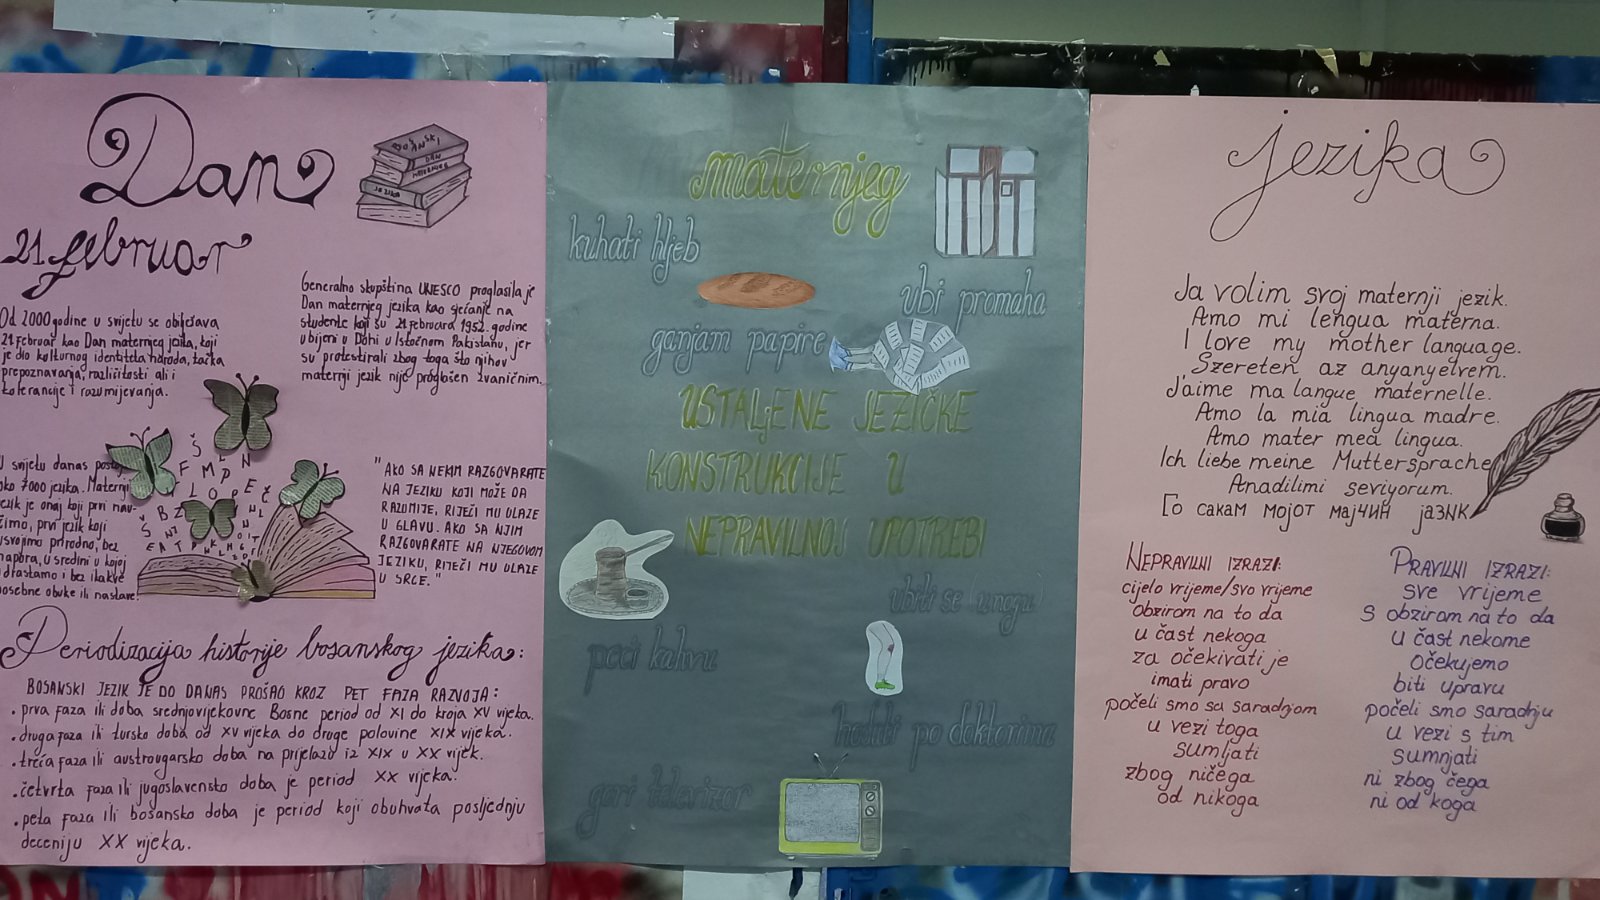 Dan
BOSANSKI
DAN
MATERNJEG
JEZIKA
21. februar
Od 2000 godine u svijetu se obilježava
21. februar kao Dan maternjeg jezika, koji
je dio kulturnog identiteta naroda, tačka
prepoznavanja, različitosti ali i
tolerancije i razumijevanja.
Generalno skupština UNESCO proglasila je
Dan maternjeg jezika kao sjećanje na
studente koji su 21. februara 1952. godine
ubijeni u Dahi u Istočnom Pakistanu, jer
su protestirali zbog toga što njihov
maternji jezik nije proglašen zvaničnim.
U svijetu danas
oko 7000 jezika. Maternji
jezik je onaj koji prvi
prvi jezik koji
usvojimo prirodno, bez
napora, u sredini u kojoj
odrastamo i bez ikakve
posebne obuke ili nastave.
"AKO SA NEKIM RAZGOVARATE
NA JEZIKU KOJI MOŽE DA
RAZUMIJE, RIJEČI MU ULAZE
U GLAVU. AKO SA NJIM
RAZGOVARATE NA NJEGOVOM
JEZIKU, RIJEČI MU ULAZE
U SRCE."
Periodizacija historije bosanskog jezika:
BOSANSKI JEZIK JE DO DANAS PROŠAO KROZ PET FAZA RAZVOJA:
. prva faza ili doba srednjovjekovne Bosne period od XI do kraja XV vijeka.
. druga faza ili tursko doba od XV vijeka do druge polovine XIX vijeka.
. treća faza ili austrougarsko doba na prijelazu iz XIX u XX vijek.
. četvrta faza ili jugoslavensko doba je period XX vijeka.
. peta faza ili bosansko doba je period koji obuhvata posljednju
deceniju XX vijeka.
maternjeg
kuhati hljeb
ubi promaha
ganjam papire
USTALJENE JEZIČKE
KONSTRUKCIJE U
NEPRAVILNOJ UPOTREBI
ubiti se (u nogu)
peći kahvu
hoditi po doktorima
gori televizor
jezika
Ja volim svoj maternji jezik.
Amo mi lengua materna.
I love my mother language.
Szeretem az anyanyelvem.
J'aime ma langue maternelle.
Amo la mia lingua madre.
Amo mater mea lingua.
Ich liebe meine Muttersprache
Anadilimi seviyorum.
Го сакам мојот мајчин јазик
NEPRAVILNI IZRAZI:
cijelo vrijeme/svo vrijeme
obzirom na to da
u čast nekoga
za očekivati je
imati pravo
počeli smo sa saradnjom
u vezi toga
sumljati
zbog ničega
od nikoga
PRAVILNI IZRAZI:
sve vrijeme
s obzirom na to da
u čast nekome
očekujemo
biti upravu
počeli smo saradnju
u vezi s tim
sumnjati
ni zbog čega
ni od koga